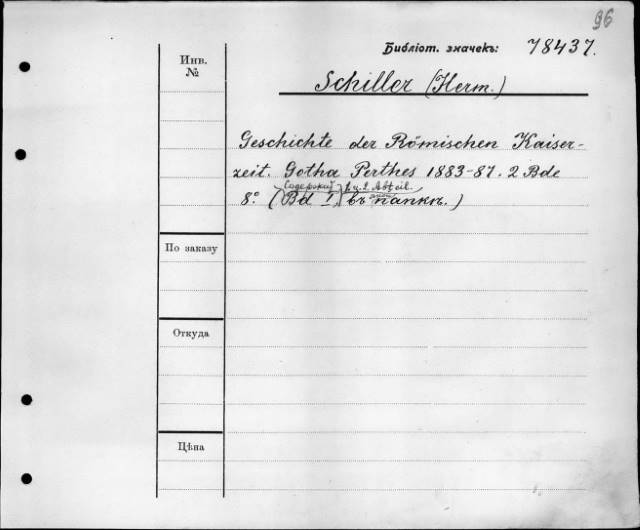 96
Библіот. значекъ: 78437.
Инв.
№
Schiller (Herm.)
Geschichte der Römischen Kaiser-
zeit. Gotha Perthes 1883-87. 2 Bde
1 u. 2. Abteil.
8º. (Bd I) въ папкѣ.)
По заказу
Откуда
Цѣна